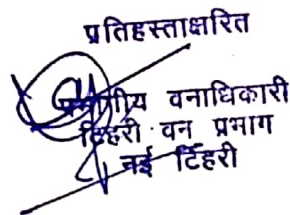 प्रतिहस्ताक्षरित
प्रभागीय वनाधिकारी
टिहरी वन प्रभाग
नई टिहरी